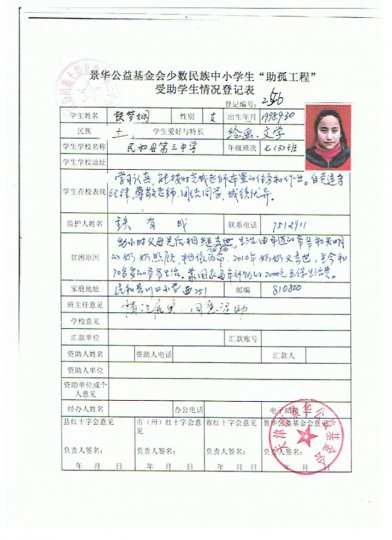 景华公益基金会少数民族中小学生“助孤工程”
受助学生情况登记表
登记编号:
学生姓名 性别 女 出生年月 1998.9.30
民族 土 学生爱好与特长 绘画、文学
学生学校名称 民和县第三中学 年级班次 七(3)班
学生学校地址
学习认真 老师布置的任务和作业。自觉遵守
学生在校表现 纪律,尊敬老师,团结同学,成绩优异。
监护人姓名 铁有成 联系电话 7512911
自小时父母先后相继去世,生活由年迈的爷爷和失明
贫困原因 的奶奶照顾,相依为命,2010年奶奶又去世,至今和
70多岁的爷爷生活。 2000元主持生活费。
家庭地址 民和县川口小学 251 邮编 810800
班主任意见 情况属实,同意资助
学校意见
汇款单位 汇款账号
资助人姓名 资助人电话 汇款人
资助人单位
资助单位或个
人意见
经办人姓名 办公电话 电子邮箱
县红十字会意见 市(州)红十字会意见 省红十字会意见 景华公益基金会意见
负责人签名: 负责人签名: 负责人签名: 负责人签名:
年 月 日 年 月 日 年 月 日 年 月 日
天津市景华公益基金会